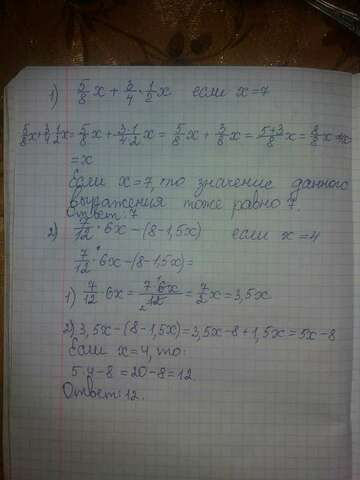 1) 5/8 x + 3/4 · 1/2 x если x = 7
5/8 x + 3/4 · 1/2 x = 5/8 x + 3·1/4·2 x = 5/8 x + 3/8 x = 5+3/8 x = 8/8 x
= x
Если x = 7, то значение данного
выражения тоже равно 7.
Ответ: 7
2) 7/12 · 6x - (8 - 1,5x) если x = 4
7/12 · 6x - (8 - 1,5x) =
1) 7/12 · 6x = 7 6x/12 = 7/2 x = 3,5x
2) 3,5x - (8 - 1,5x) = 3,5x - 8 + 1,5x = 5x - 8
Если x = 4, то:
5·4 - 8 = 20 - 8 = 12.
Ответ: 12.